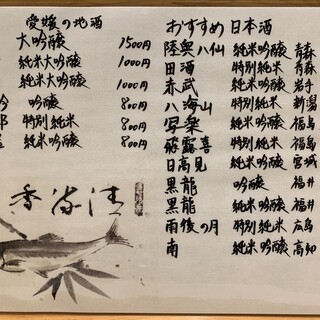 愛媛の地酒
大吟醸 1500円
純米大吟醸 1000円
純米大吟醸 1000円
吟醸 800円
特別純米 800円
純米吟醸 800円
おすすめ日本酒
陸奥八仙 純米吟醸 青森
田酒 特別純米 青森
赤武 純米吟醸 岩手
八海山 特別純米 新潟
写楽 純米吟醸 福島
飛露喜 特別純米 福島
日高見 純米吟醸 宮城
黒龍 吟醸 福井
黒龍 純米吟醸 福井
雨後の月 特別純米 広島
南 純米吟醸 高知